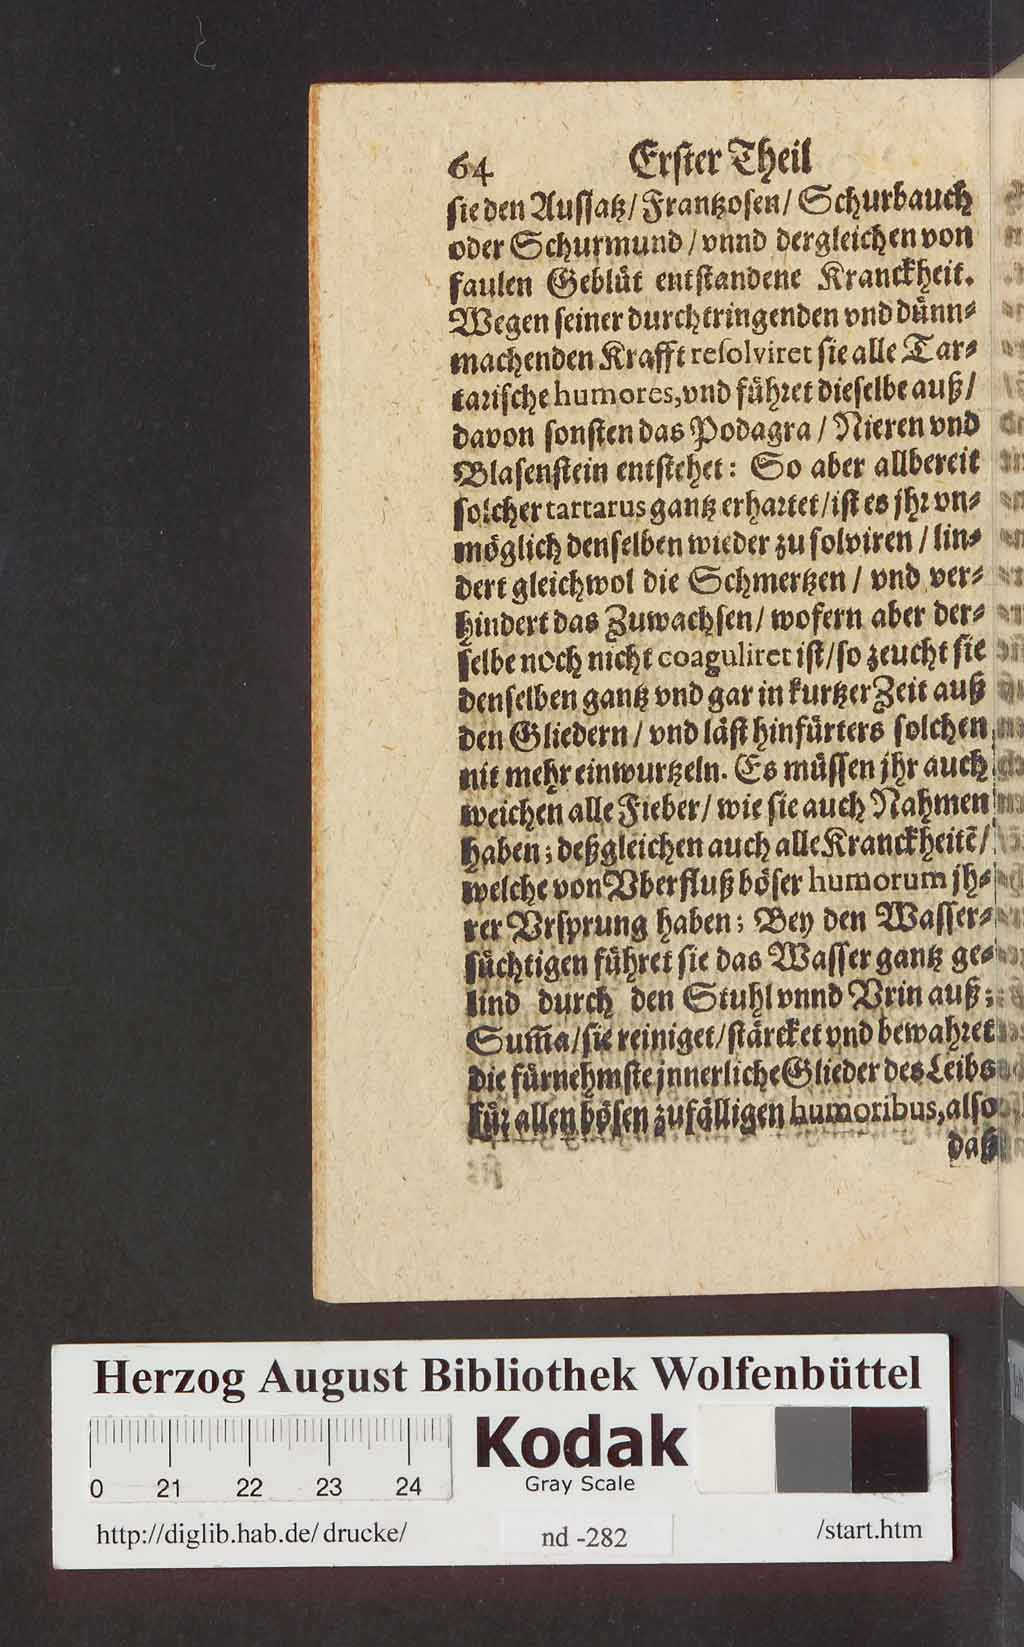 64 Erster Theil
sie den Aussatz/ Frantzosen/ Schurbauch
oder Schurmund / vnnd dergleichen von
faulen Geblüt entstandene Kranckheit.
Wegen seiner durchtringenden vnd dünn-
machenden Krafft resolviret sie alle Tar-
tarische humores, vnd führet dieselbe auß/
davon sonsten das Podagra / Nieren vnd
Blasenstein entstehet: So aber allbereit
solcher tartarus gantz erhartet/ ist es jhr vn-
möglich denselben wieder zu solviren / lin-
dert gleichwol die Schmertzen / vnd ver-
hindert das Zuwachsen/ wofern aber der-
selbe noch nicht coaguliret ist/ so zeucht sie
denselben gantz vnd gar in kurtzer Zeit auß
den Gliedern / vnd läst hinfürters solchen
nit mehr einwurtzeln. Es müssen jhr auch
weichen alle Fieber/ wie sie auch Nahmen
haben; deßgleichen auch alle Kranckheitẽ/
welche von Vberfluß böser humorum jh-
rer Vrsprung haben; Bey den Wasser-
süchtigen führet sie das Wasser gantz ge-
lind durch den Stuhl vnnd Vrin auß;
Sum̃a/ sie reiniget/ stärcket vnd bewahret
die fürnehmste jnnerliche Glieder des Leibs
für allen bösen zufälligen humoribus, also
daß
Herzog August Bibliothek Wolfenbüttel
0 21 22 23 24
Kodak
Gray Scale
http://diglib.hab.de/drucke/ nd -282 /start.htm